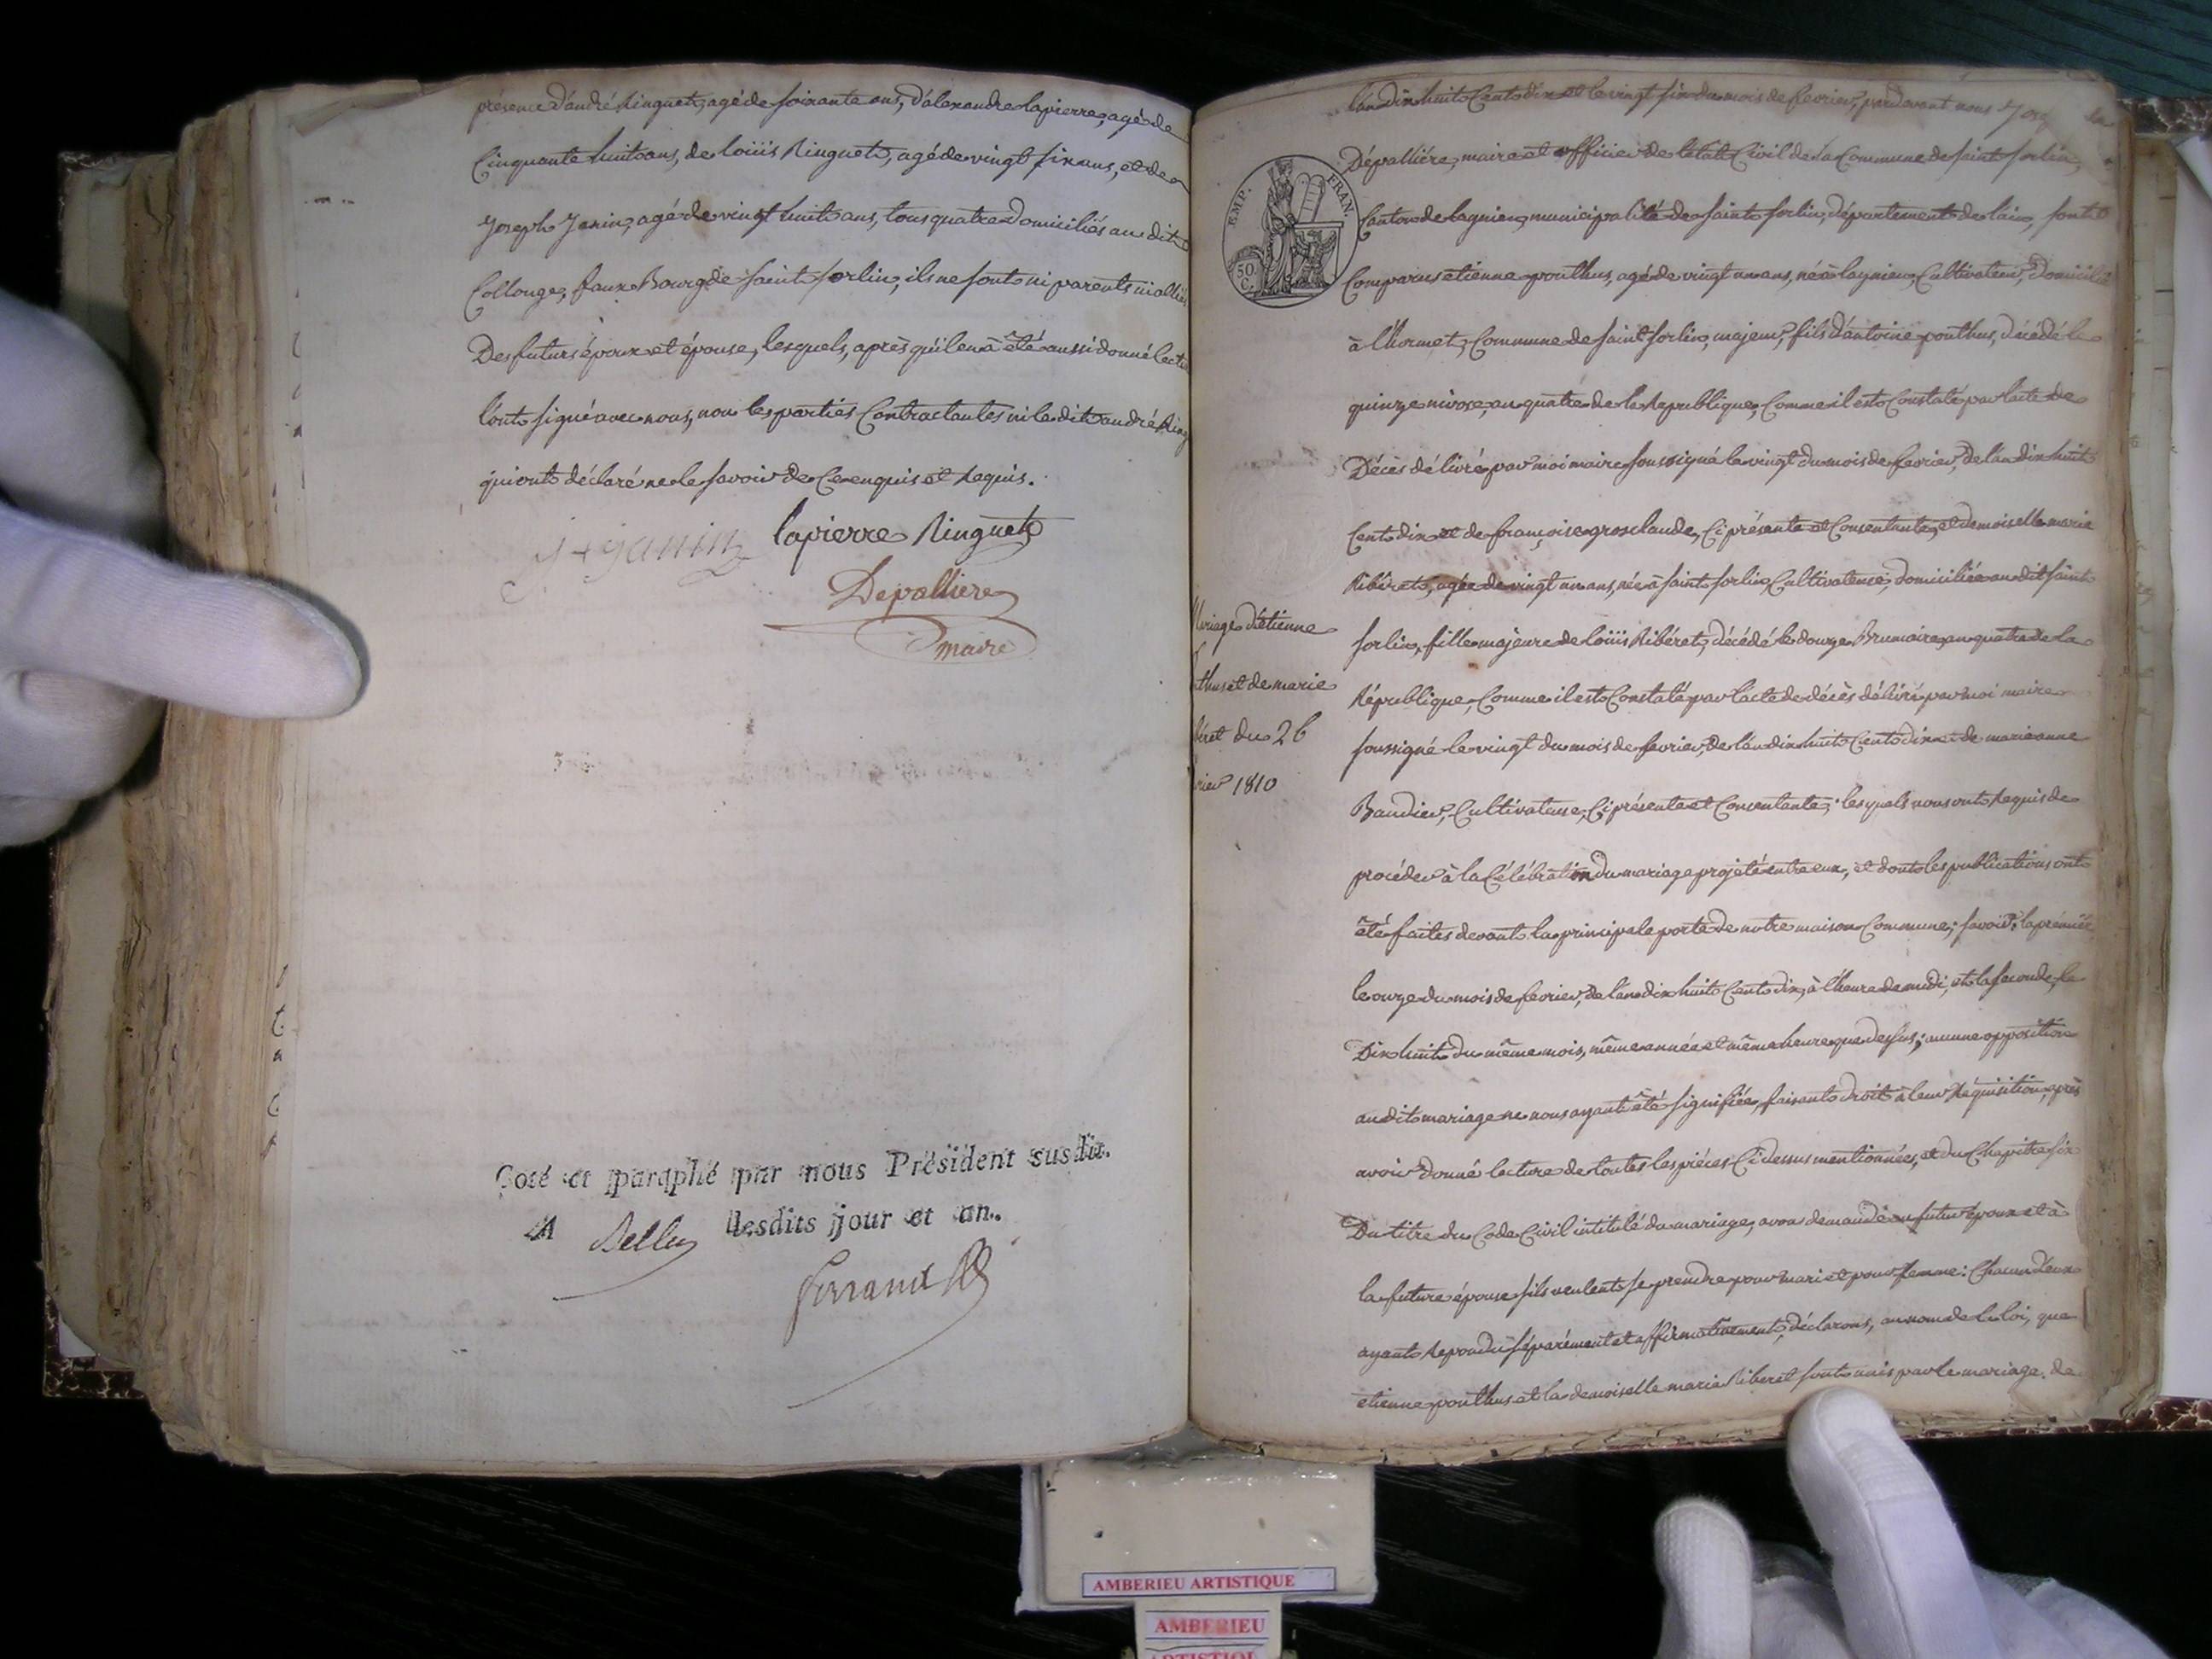 présence d'andré Ringuet, agé de soixante ans, d'alexandre lapierre, agé de
Cinquante huit ans, de loüis Ringuet, agé de vingt six ans, et de
Joseph Janin, agé de vingt huit ans, tous quatre Domiciliés au dit
Collonge, faux Bourg de saint sorlin, ils ne sont ni parents ni alliés
Des futurs époux et épouse, lesquels, après qu'il en à été aussi donné lectu
l'ont signé avec nous, non les parties Contractantes ni le dit andré Ring
qui ont déclaré ne le savoir de Ce enquis et Requis.
J + janin lapierre Ringuet
Depalliere
maire
Coté et paraphé par nous Président susdit.
A Belley lesdits jour et an.
l'an dix huit Cent dix et le vingt six du mois de fevrier, pardevant nous
Dépalliére, maire et officier de l'état Civil de la Commune de saint sorlin,
Canton de lagnieu, municipalité de saint sorlin, département de l'ain, sont
Comparus etienne ponthus, agé de vingt un ans, né à lagnieu, Cultivateur, Domicilié
à l'hormet, Commune de saint sorlin, majeur, fils d'antoine ponthus, décédé le
quinze nivose, an quatre de la Republique, Comme il est Constaté par l'acte de
Décès délivré par moi maire soussigné le vingt du mois de fevrier, de l'an dix huit
Cent dix et de françoise grosclaude, Ci présente et Consentante, et demoiselle marie
Ribéret, agée de vingt un ans, née à saint sorlin, Cultivateuse, domiciliée au dit saint
sorlin, fille majeure de loüis Ribéret, décédé le douze Brumaire, an quatre de la
République, Comme il est Constaté par l'acte de décès délivré par moi maire
soussigné le vingt du mois de fevrier, de l'an dix huit Cent dix et de marie anne
Baudier, Cultivateuse, Ci présente et Consentante; lesquels nous ont Requis de
procéder à la Célébration du mariage projeté entre eux, et dont les publications ont
été faites devant la principale porte de notre maison Commune; savoir: la premiére
le onze du mois de fevrier, de l'an dix huit Cent dix, à l'heure de midi, et la seconde, le
Dix huit du même mois, même année et même heure que dessus; aucune opposition
au dit mariage ne nous ayant été signifiée, faisant droit à leur Réquisition, après
avoir donné lecture de toutes les piéces Ci dessus mentionnées, et du Chapitre six
Du titre du Code Civil intitulé du mariage, avons demandé au futur époux et à
la future épouse s'ils veulent se prendre pour mari et pour femme: Chacun d'eux
ayant Repondu séparément et affirmativement, déclarons, au nom de la loi, que
etienne ponthus et la demoiselle marie Riberet sont unis par le mariage. de
EMP. FRAN.
50
C.
Mariage d'étienne
thus et de marie
béret du 26
vrier 1810
AMBERIEU ARTISTIQUE
AMBERIEU
ARTISTIQUE